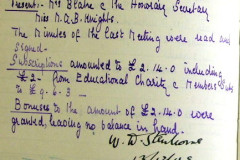 Present:- Mr Blake & the Honorary Secretary
Miss M.G.B. Knights.
The Minutes of the Last Meeting were read and
signed.
Subscriptions amounted to £2.14.0 including
£2- from Educational Charity & Members
to
Bonuses to the amount of £2.14.0 were
granted, leaving no balance in hand.
W. D.